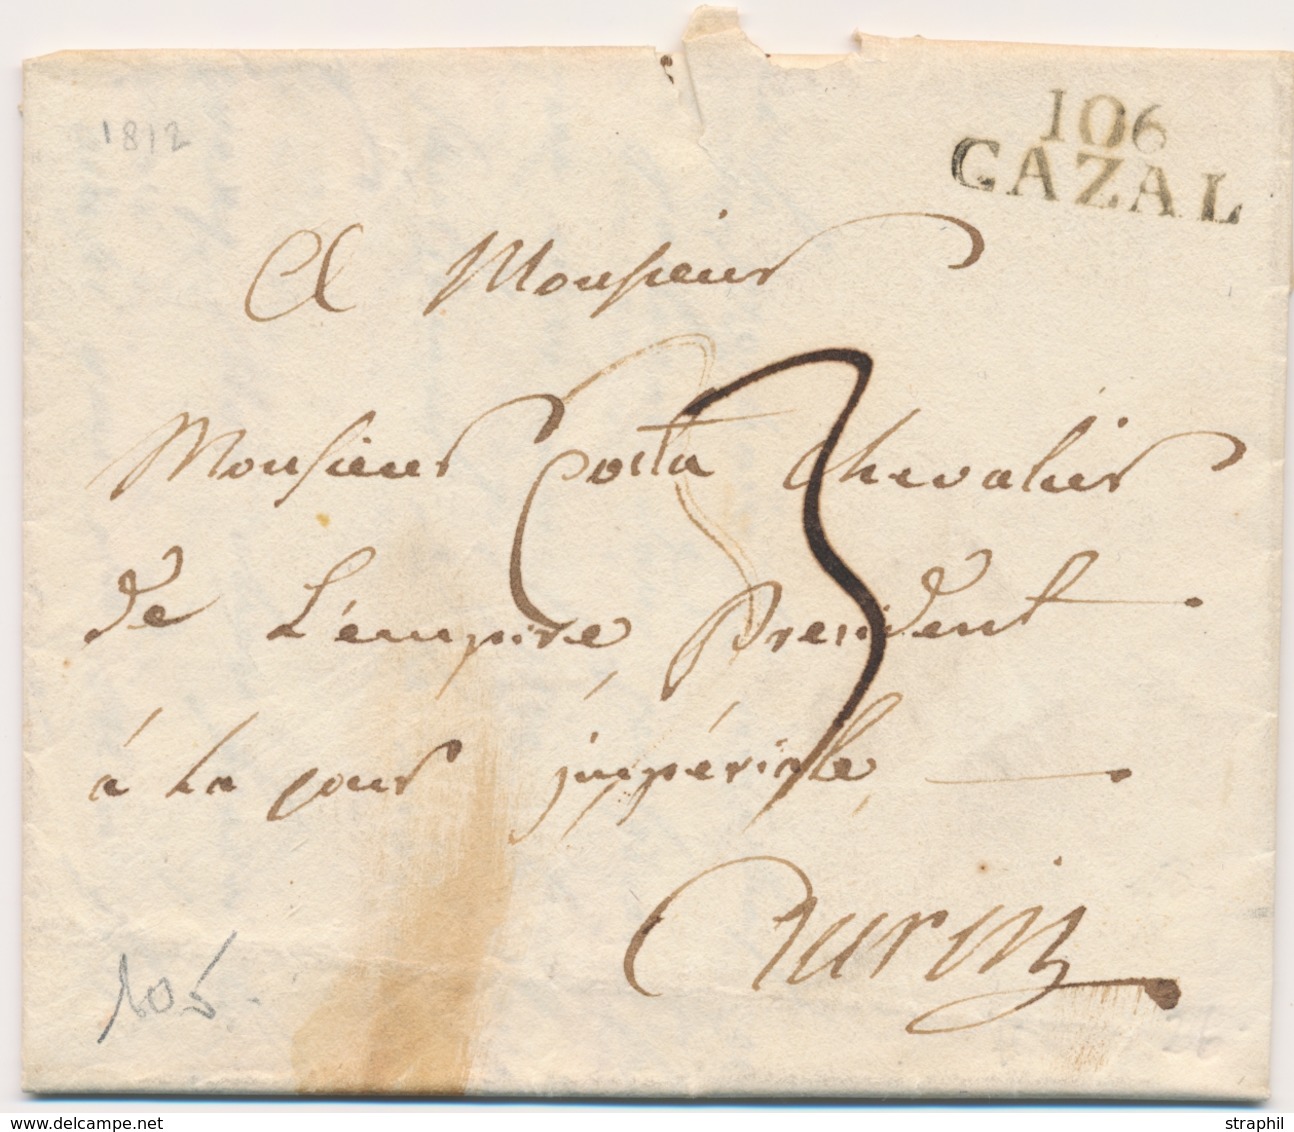 1812
106
CAZAL
A Monsieur
3
Monsieur Costa Chevalier
de L'émpire, President
à La Cour jmpériale
Turin
105
www.delcampe.net
straphil